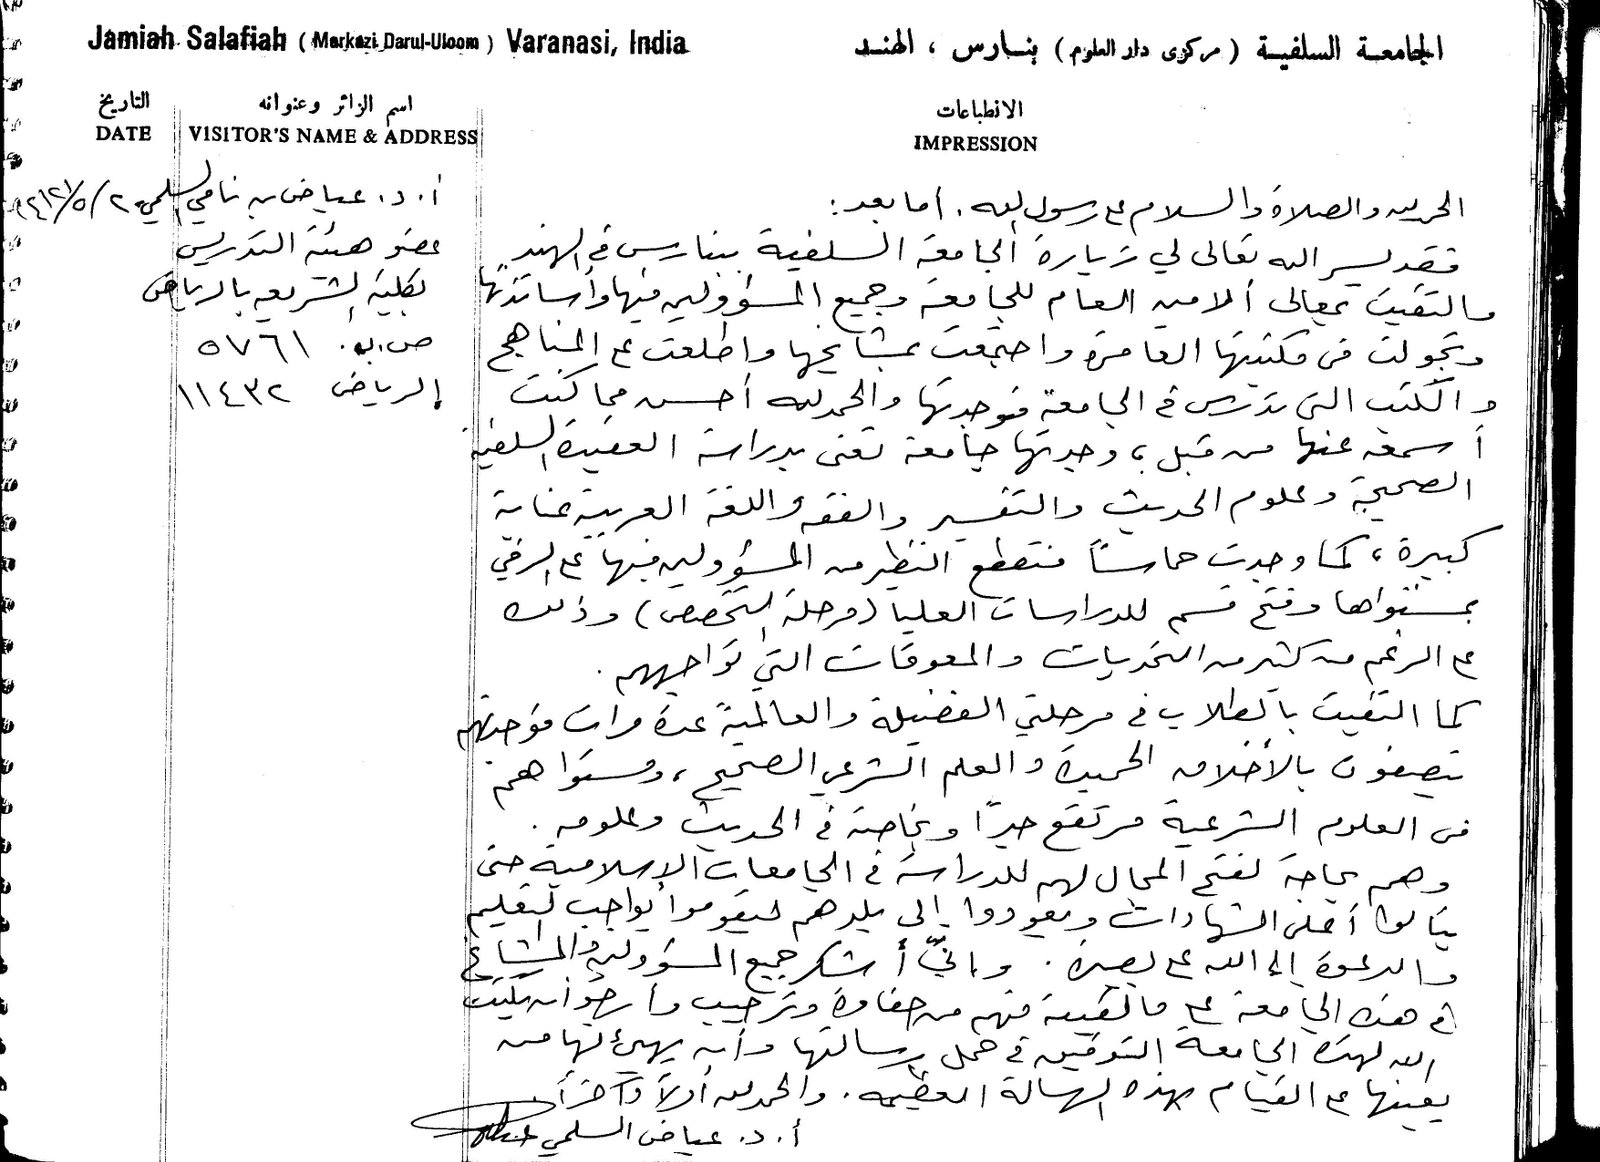 Jamiah Salafiah ( Markazi Darul-Uloom ) Varanasi, India
الجامعة السلفية ( مركزى دار العلوم ) بنارس ، الهند
التاريخ
DATE
اسم الزائر وعنوانه
VISITOR'S NAME & ADDRESS
الانطباعات
IMPRESSION
أ. د. عياض بن نامي السلمي
عضو هيئة التدريس
بكلية الشريعة بالرياض
ص.ب. ٥٧٦١
الرياض ١١٤٣٢
الحمد لله والصلاة والسلام على رسول الله. أما بعد:
فقد يسر الله تعالى لي زيارة الجامعة السلفية ببنارس في الهند
والتقيت بمعالي الأمين العام للجامعة وجميع المسؤولين فيها وأساتذتها
وتجولت في مكتبتها العامرة واجتمعت بمشايخها واطلعت على المناهج
والكتب التي تدرس في الجامعة فوجدتها والحمد لله أحسن مما كنت
أسمع عنها من قبل، وجدتها جامعة تعنى بدراسة العقيدة السلفية
الصحيحة وعلوم الحديث والتفسير والفقه واللغة العربية عناية
كبيرة، كما وجدت حماساً منقطع النظير من المسؤولين فيها على الرقي
بمستواها وفتح قسم للدراسات العليا (مرحلة التخصص) وذلك
على الرغم من كثير من التحديات والمعوقات التي تواجههم.
كما التقيت بالطلاب في مرحلتي الفضيلة والعالمية عدة مرات فوجدتهم
يتصفون بالأخلاق الحميدة والعلم الشرعي الصحيح، ومستواهم
في العلوم الشرعية مرتفع جداً وبخاصة في الحديث وعلومه.
وهم بحاجة لفتح المجال لهم للدراسة في الجامعات الإسلامية حتى
ينالوا أعلى الشهادات ويعودوا إلى بلدهم ليقوموا بواجب التعليم
والدعوة إلى الله على بصيرة. وإني أشكر جميع المسؤولين والمشايخ
في هذه الجامعة على ما لقيته منهم من حفاوة وترحيب وأرجو أن يكتب
الله لهذه الجامعة التوفيق في حمل رسالتها وأن يهيئ لها من
يعينها على القيام بهذه الرسالة العظيمة. والحمد لله أولاً وآخراً.
أ. د. عياض السلمي